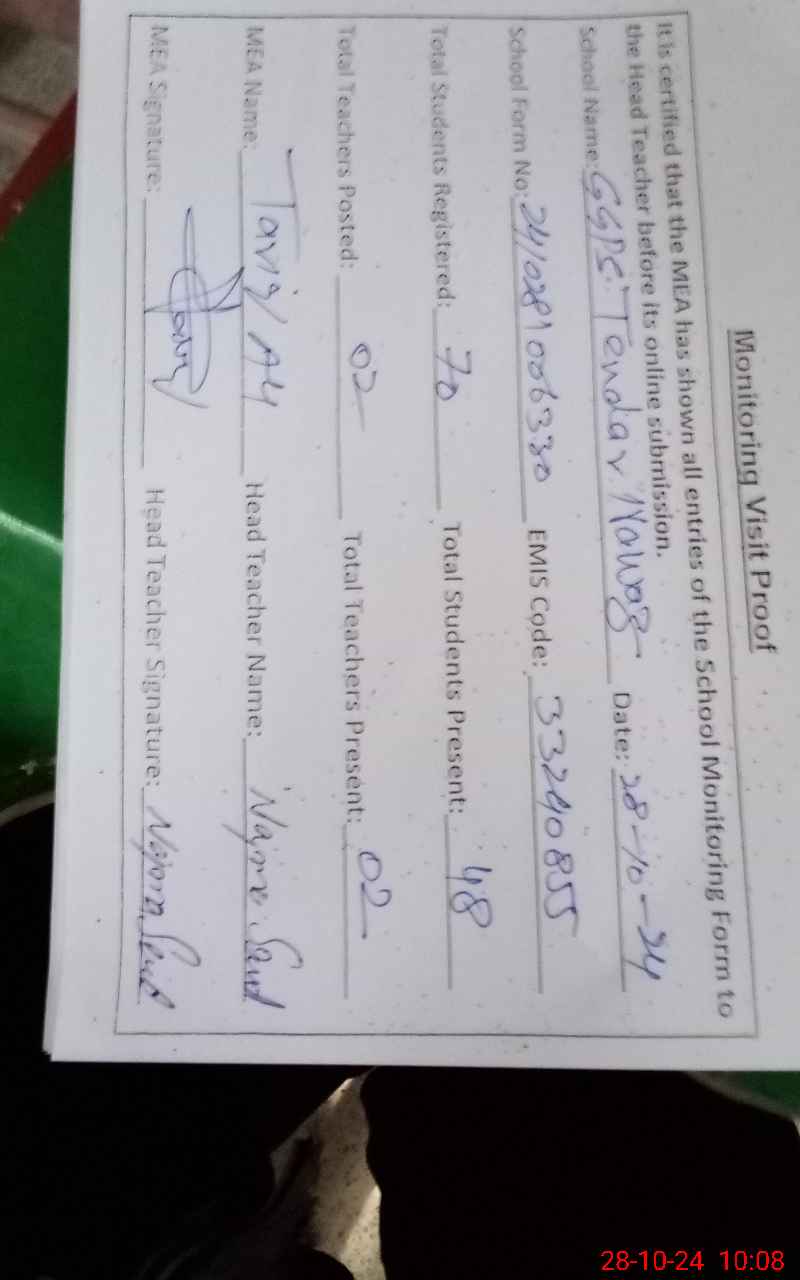 Monitoring Visit Proof
It is certified that the MEA has shown all entries of the School Monitoring Form to
the Head Teacher before its online submission.
School Name: GGPS. Tendar Nawaz Date: 28-10-24
School Form No: 2410281006330 EMIS Code: 33240855
Total Students Registered: 70 Total Students Present: 48
Total Teachers Posted: 02 Total Teachers Present: 02
MEA Name: Head Teacher Name: Najma
MEA Signature: Head Teacher Signature: Najma
28-10-24 10:08